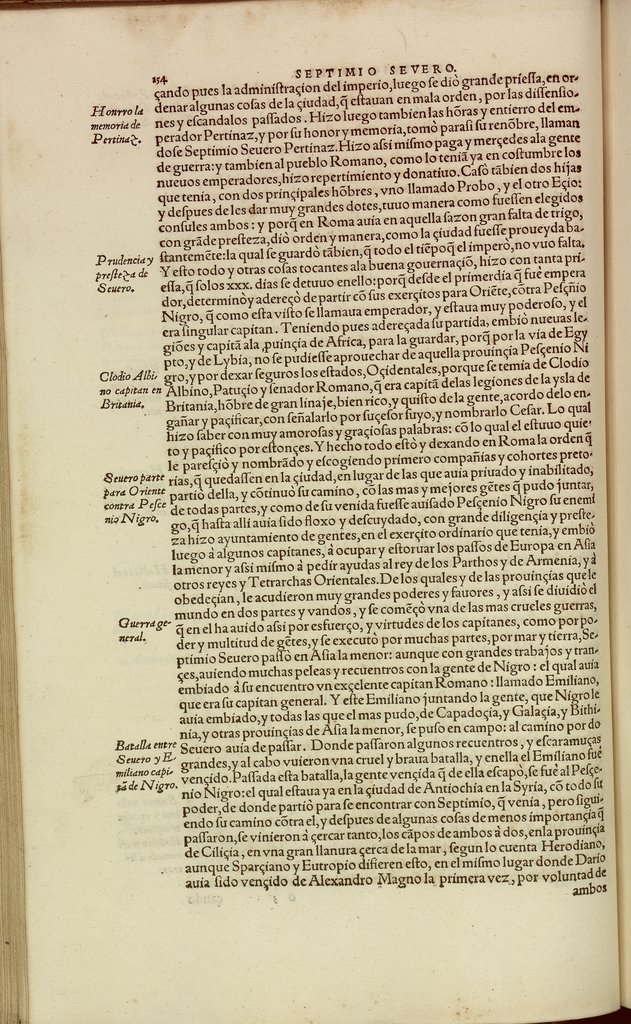 154
SEPTIMIO SEVERO.
çando pues la administraçion del imperio, luego se diò grande priessa, en or-
denar algunas cosas de la çiudad, q̃ estauan en mala orden, por las dissensio-
Honrro la
memoria de
Pertinaz.
nes y escandalos passados. Hizo luego tambien las hõras y entierro del em-
perador Pertinaz, y por su honor y memoria, tomò parasi su renõbre, llaman
dose Septimio Seuero Pertinaz. Hizo assi mismo paga y merçedes ala gente
de guerra: y tambien al pueblo Romano, como lo tenia ya en costumbre los
nueuos emperadores, hizo repertimiento y donatiuo. Casò tãbien dos hijas
que tenia, con dos prinçipales hõbres, vno llamado Probo, y el otro Eçio:
y despues de les dar muy grandes dotes, tuuo manera como fuessen elegidos
consules ambos: y porq̃ en Roma auia en aquella sazon gran falta de trigo,
con grãde presteza, diò orden y manera, como la çiudad fuesse proueyda ba-
Prudencia y
presteza de
Seuero.
stantemẽte: la qual se guardò tãbien, q̃ todo el tiẽpo q̃ el imperò, no vuo falta.
Y esto todo y otras cosas tocantes ala buena gouernaçiõ, hizo con tanta pri-
essa, q̃ solos xxx. dias se detuuo enello: porq̃ desde el primer dia q̃ fuè empera
dor, determinò y adereçò de partir cõ sus exerçitos para Oriẽte, cõtra Pesçñio
Nigro, q̃ como esta visto se llamaua emperador, y estaua muy poderoso, y el
era singular capitan. Teniendo pues adereçada su partida, embiò nueuas le-
giões y capitã ala ꝓuinçia de Africa, para la guardar, porq̃ por la via de Egy
pto, y de Lybia, no se pudiesse aprouechar de aquella prouinçia Pesçenio Ni
Clodio Albi-
no capitan en
Britania.
gro, y por dexar seguros los estados, Oçidentales, porque se temia de Clodio
Albino, Patuçio y senador Romano, q̃ era capitã delas legiones de la ysla de
Britania, hõbre de gran linaje, bien rico, y quisto de la gente, acordo delo en-
gañar y paçificar, con señalarlo por suçesor suyo, y nombrarlo Cesar. Lo qual
hizo saber con muy amorosas y graçiosas palabras: cõ lo qual el estuuo quie-
to y paçifico por estonçes. Y hecho todo estò y dexando en Roma la orden q̃
le paresçiò y nombrãdo y escogiendo primero compañias y cohortes preto-
Seuero parte
para Oriente
contra Pesce
nio Nigro.
rias, q̃ quedassen en la çiudad, en lugar de las que auia priuado y inabilitado,
partiò della, y cõtinuò su camino, cõ las mas y mejores gẽtes q̃ pudo juntar,
de todas partes, y como de su venida fuesse auisado Pesçenio Nigro su enemi
go, q̃ hasta alli auia sido floxo y descuydado, con grande diligençia y preste-
za hizo ayuntamiento de gentes, en el exerçito ordinario que tenia, y embiò
luego à algunos capitanes, à ocupar y estoruar los passos de Europa en Asia
la menor y assi mismo à pedir ayudas al rey de los Parthos y de Armenia, y à
otros reyes y Tetrarchas Orientales. De los quales y de las prouinçias que le
obedeçian, le acudieron muy grandes poderes y fauores, y assi se diuidiò el
mundo en dos partes y vandos, y se comẽçò vna de las mas crueles guerras,
Guerra ge-
neral.
q̃ en el ha auido assi por esfuerço, y virtudes de los capitanes, como por po-
der y multitud de gẽtes, y se executò por muchas partes, por mar y tierra, Se-
ptimio Seuero passò en Asia la menor: aunque con grandes trabajos y tran-
çes, auiendo muchas peleas y recuentros con la gente de Nigro: el qual auia
embiado à su encuentro vn exçelente capitan Romano: llamado Emiliano,
que era su capitan general. Y este Emiliano juntando la gente, que Nigro le
auia embiado, y todas las que el mas pudo, de Capadoçia, y Galaçia, y Bithi-
nia, y otras prouinçias de Asia la menor, se puso en campo: al camino por do
Batalla entre
Seuero y E-
miliano capi-
tã de Nigro.
Seuero auia de passar. Donde passaron algunos recuentros, y escaramuças
grandes, y al cabo vuieron vna cruel y braua batalla, y enella el Emiliano fuè
vençido. Passada esta batalla, la gente vençida q̃ de ella escapò, se fuè al Pesçe-
nio Nigro: el qual estaua ya en la çiudad de Antiochia en la Syria, cõ todo su
poder, de donde partiò para se encontrar con Septimio, q̃ venia, pero sigui-
endo su camino cõtra el, y despues de algunas cosas de menos importançia q̃
passaron, se vinieron à çercar tanto, los cãpos de ambos à dos, enla prouinçia
de Ciliçia, en vna gran llanura çerca de la mar, segun lo cuenta Herodiano,
aunque Sparçiano y Eutropio difieren esto, en el mismo lugar donde Dario
auia sido vençido de Alexandro Magno la primera vez, por voluntad de
ambos